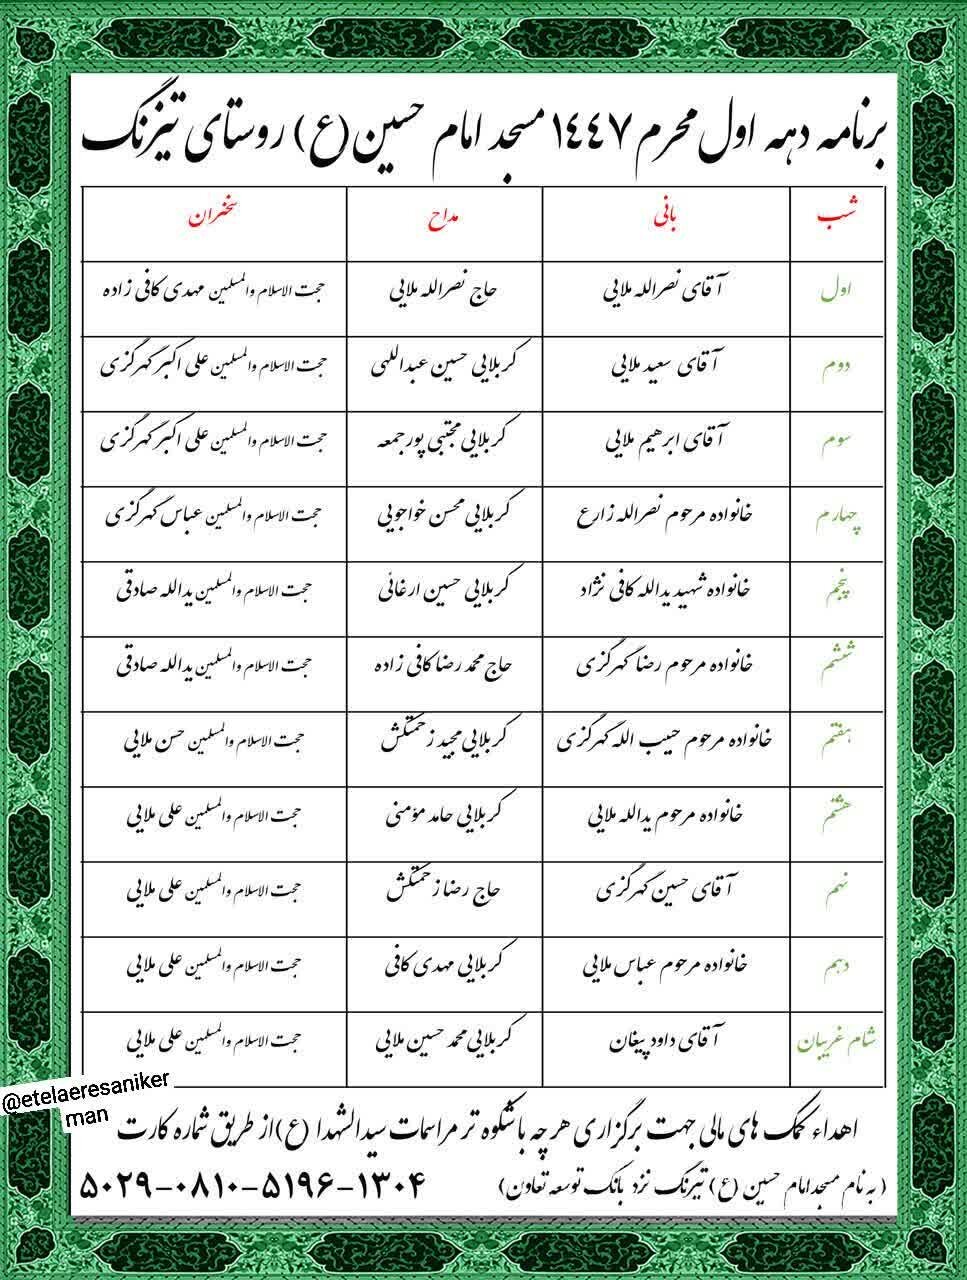 برنامه دهه اول محرم ۱۴۴۷ مسجد امام حسین (ع) روستای تیزنگ
شب بانی مداح سخنران
اول آقای نصرالله ملایی حاج نصرالله ملایی حجت الاسلام والمسلمین مهدی کافی زاده
دوم آقای سعید ملایی کربلایی حسین عبداللهی حجت الاسلام والمسلمین علی اکبر گهرگزی
سوم آقای ابرهیم ملایی کربلایی مجتبی پورجمعه حجت الاسلام والمسلمین علی اکبر گهرگزی
چهارم خانواده مرحوم نصرالله زارع کربلایی محسن خواجویی حجت الاسلام والمسلمین عباس گهرگزی
پنجم خانواده شهید یدالله کافی نژاد کربلایی حسین ارغائی حجت الاسلام والمسلمین یدالله صادقی
ششم خانواده مرحوم رضا گهرگزی حاج محمد رضا کافی زاده حجت الاسلام والمسلمین یدالله صادقی
هفتم خانواده مرحوم حبیب الله گهرگزی کربلایی مجید زحمتکش حجت الاسلام والمسلمین حسن ملایی
هشتم خانواده مرحوم یدالله ملایی کربلایی حامد مؤمنی حجت الاسلام والمسلمین علی ملایی
نهم آقای حسین گهرگزی حاج رضا زحمتکش حجت الاسلام والمسلمین علی ملایی
دهم خانواده مرحوم عباس ملایی کربلایی مهدی کافی حجت الاسلام والمسلمین علی ملایی
شام غریبان آقای داود پیغان کربلایی محمد حسین ملایی حجت الاسلام والمسلمین علی ملایی
@etelaeresaniker
man
اهداء کمک های مالی جهت برگزاری هرچه باشکوه تر مراسمات سیدالشهدا (ع) از طریق شماره کارت
۵۰۲۹-۰۸۱۰-۵۱۹۶-۱۳۰۴ (به نام مسجد امام حسین (ع) تیزنگ نزد بانک توسعه تعاون)